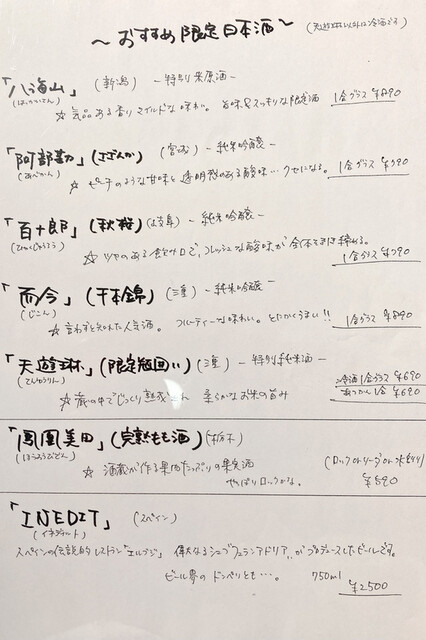 〜おすすめ限定日本酒〜 (天遊琳以外は冷酒です)
「八海山」 (新潟) －特別 原酒－
(はっかいさん)
☆ 気品ある香り マイルドな味わい。 旨味&スッキリな限定酒 1合グラス ¥890
「阿部勘」(さざんか) (宮城) －純米吟醸－
(あべかん)
☆ ピーチのような甘味と透明感のある酸味… クセになる。 1合グラス ¥790
「百十郎」(秋桜) (岐阜) －純米吟醸－
(ひゃくじゅうろう)
☆ ツヤのある飲み口で、フレッシュな酸味が全体を引き締める。
1合グラス ¥790
「而今」(千本錦) (三重) －純米吟醸－
(じこん)
☆ 言わずと知れた人気酒。 フルーティーな味わい。とにかくうまい!! 1合グラス ¥890
「天遊琳」(限定瓶囲い) (三重) －特別純米酒－
(てんゆうりん)
冷酒1合グラス ¥690
☆ 蔵の中でじっくり熟成 柔らかなお米の旨み あつかん1合 ¥690
「鳳凰美田」(完熟もも酒) (栃木)
(ほうおうびでん)
☆ 酒蔵が作る果肉たっぷりの果実酒 (ロックorソーダor水割り)
やっぱりロックかな。 ¥590
「INEDIT」 (スペイン)
(イネディット)
スペインの伝説的レストラン"エルブジ" 偉大なるシェフ"フェランアドリア"がプロデュースしたビールです。
ビール界のドンペリとも…。 750ml ¥2500